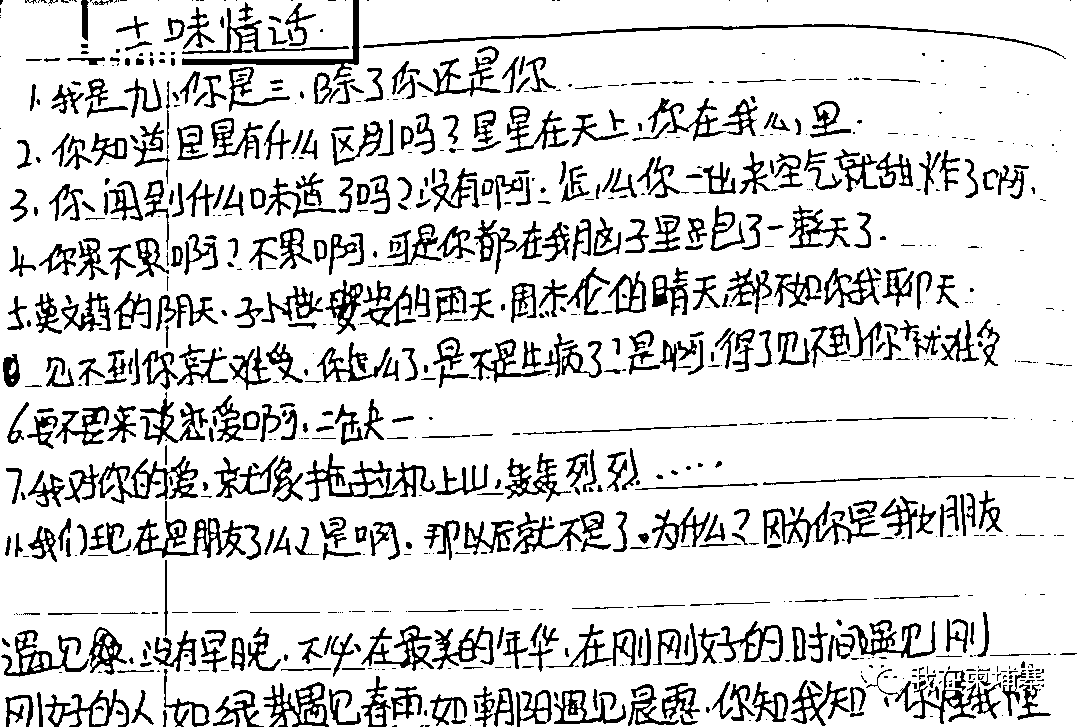 土味情话.
1.我是九,你是三,除了你还是你.
2.你知道星星有什么区别吗?星星在天上,你在我心里.
3.你闻到什么味道了吗?没有啊.怎么你一出来空气就甜炸了啊.
4.你累不累啊?不累啊,可是你都在我脑子里跑了一整天了.
5.莫文蔚的阴天,孙燕安的雨天,周杰伦的晴天,都不如你我聊天.
见不到你就难受.你怎么了,是不是生病了?是啊,得了见不到你就难受
6.要不要来谈恋爱啊,二缺一.
7.我对你的爱,就像拖拉机上山,轰轰烈烈……
11.我们现在是朋友了么?是啊,那以后就不是了。为什么?因为你是我女朋友
遇见 没有早晚,不必在最美的年华,在刚刚好的时间遇见刚
刚好的人,如绿芽遇见春雨,如朝阳遇见晨露,你知我知,你懂我懂
我在柬埔寨